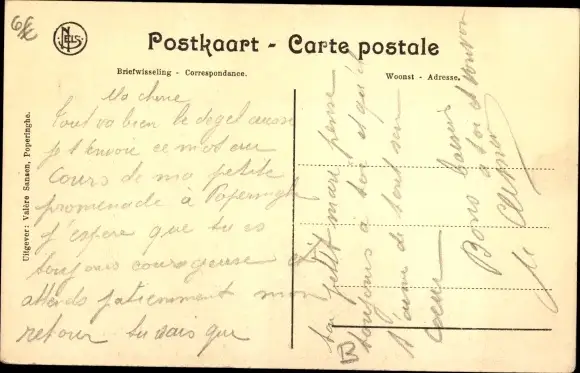 NELS
Postkaart - Carte postale
Briefwisseling - Correspondance.
Woonst - Adresse.
Uitgever: Valère Sansen, Poperinghe.
Ma chérie
Tout va bien le degel aussi
je t'envoie ce mot au
cours de ma petite
promenade à Poperinghe
j'espère que tu es
toujours courageuse et
attends patiemment mon
retour tu sais que
ton petit mari pense
toujours à toi et qu'il
t'aime de tout son
coeur
Bons baisers
à toi et